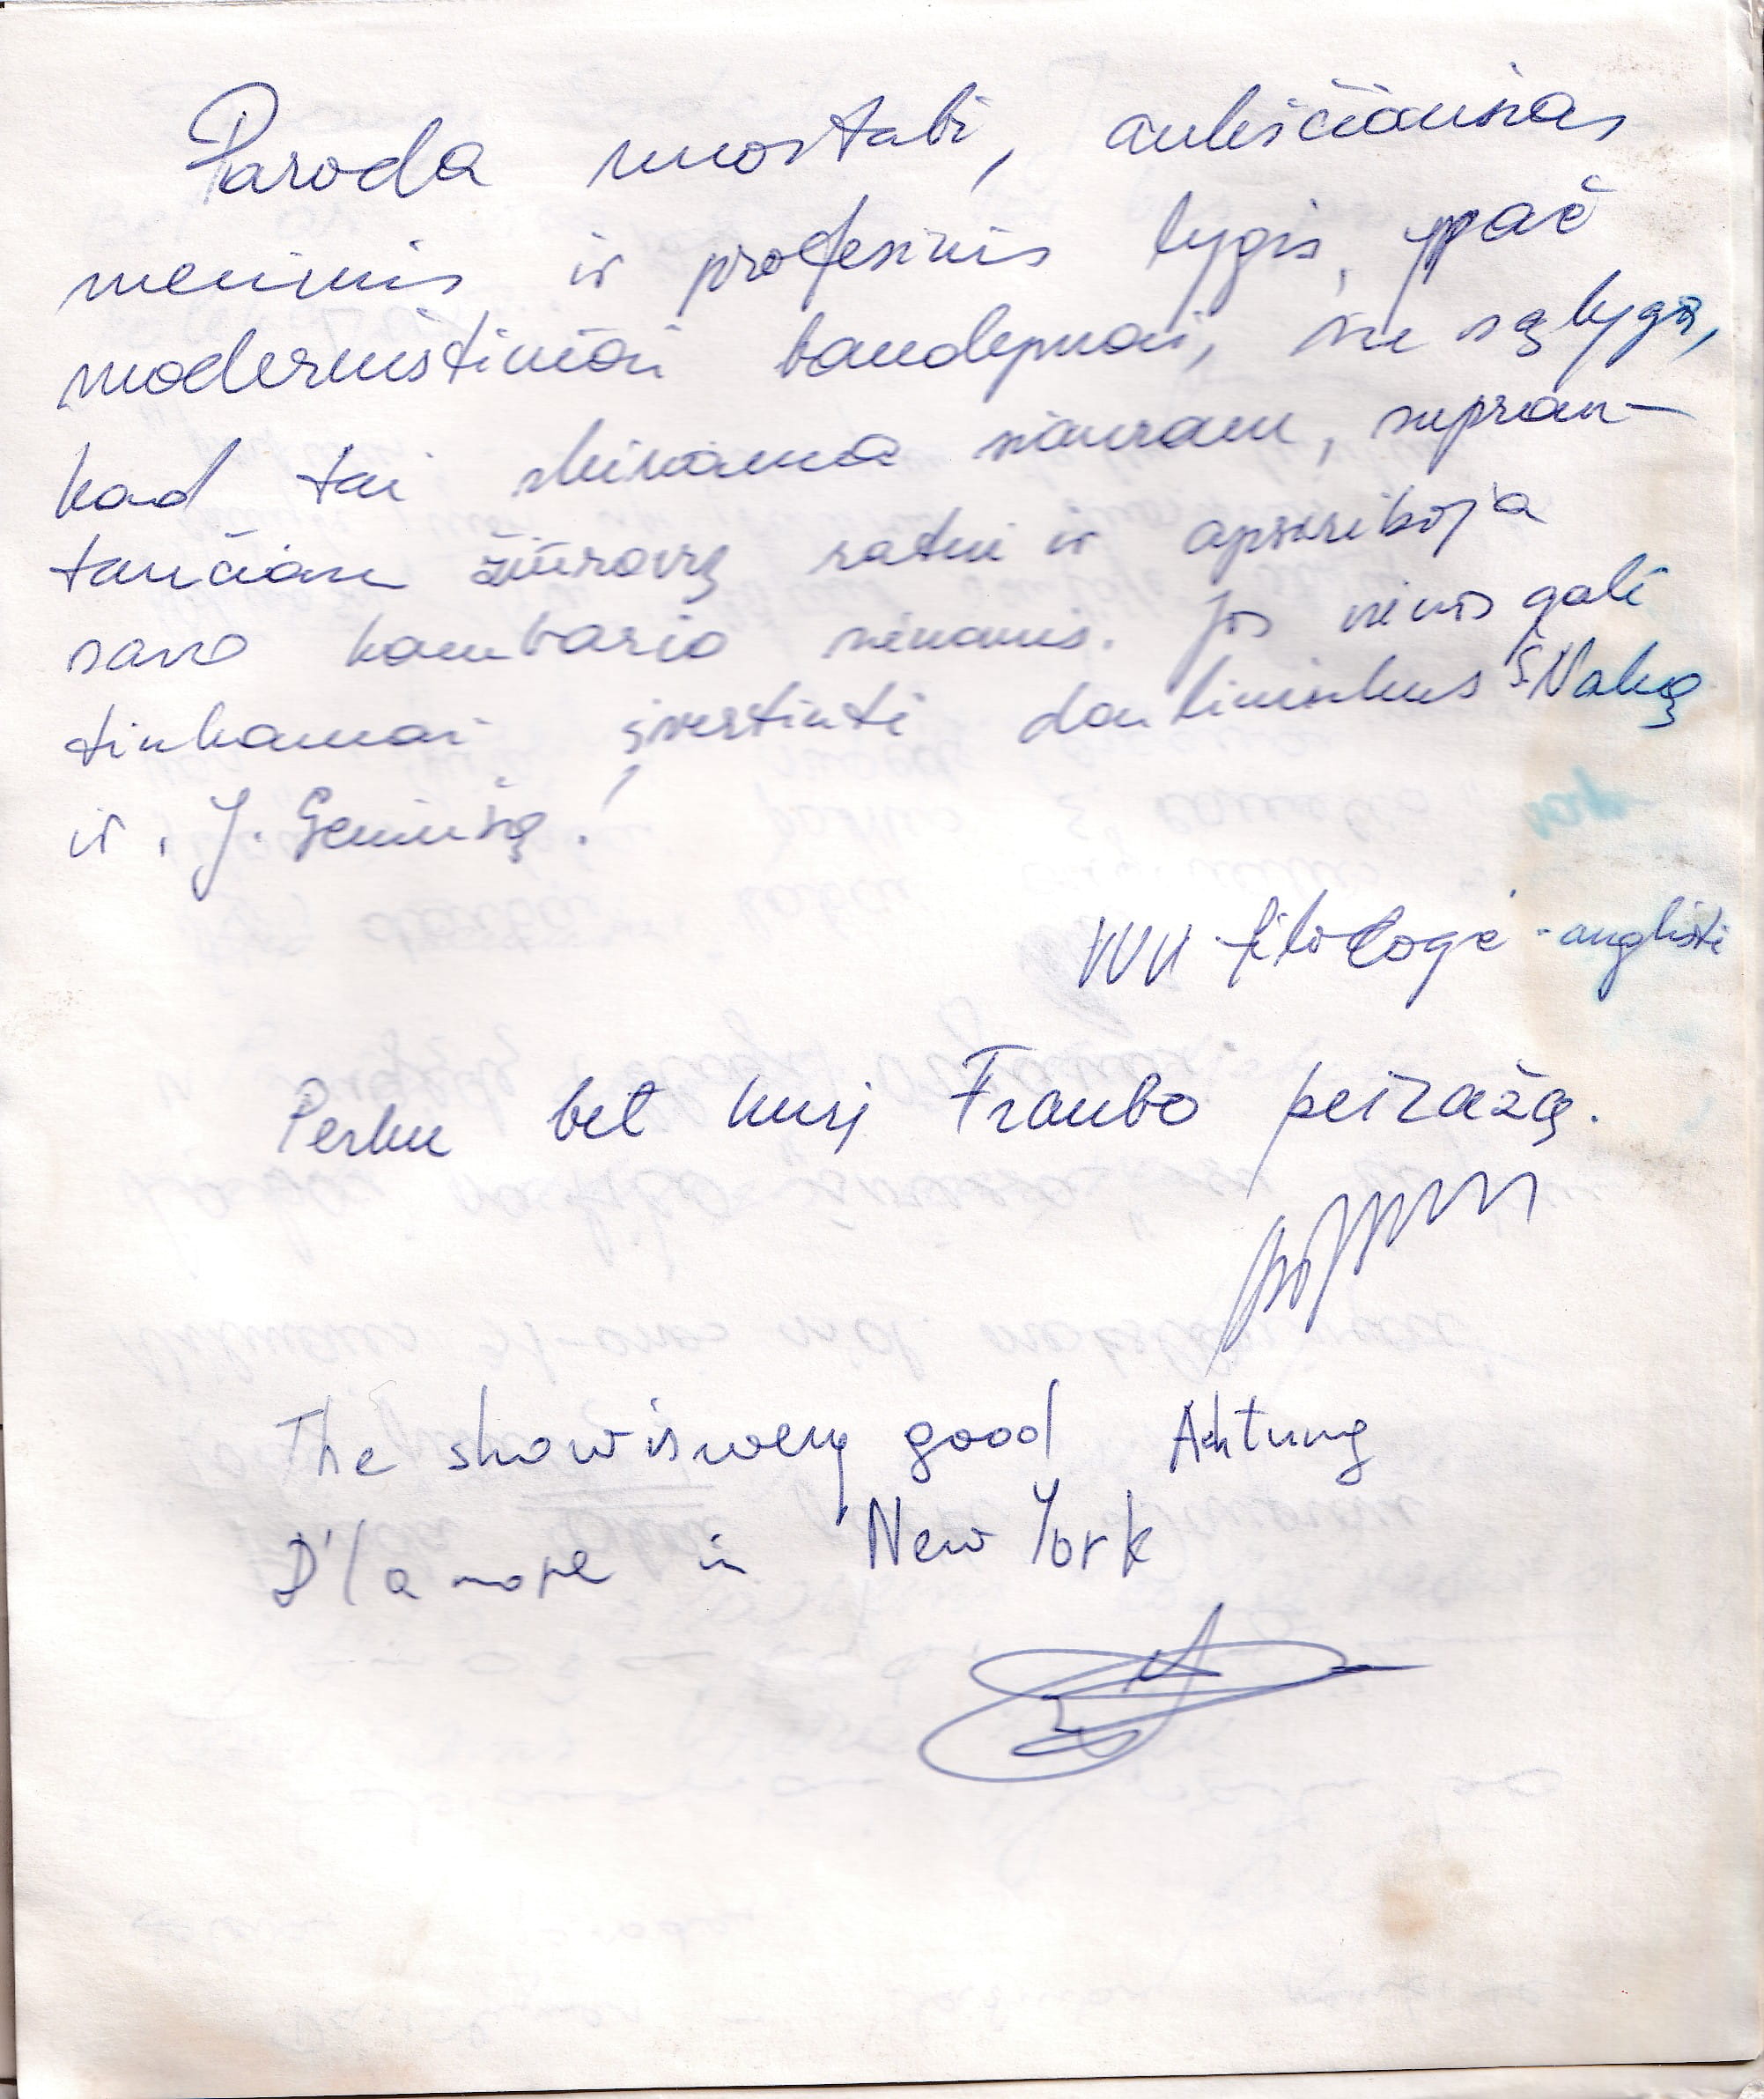 Paroda nuostabi, aukščiausias
meninis ir profesinis lygis, ypač
modernistiniai bandymai, su sąlyga,
kad tai skiriama siauram, supran-
tančiam žiūrovų ratui ir apsiriboja
savo kambario sienomis. Jos vienos gali
tinkamai įvertinti dailininkus
ir J.
VVU filologė-anglistė
Perku bet kurį Fraubo peizažą.
The show is wery good Achtung
D'la more in New York